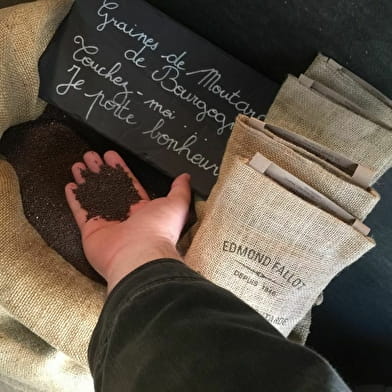 Graines de Moutarde
de Bourgogne
Touchez-moi
Je porte bonheur
EDMOND FALLOT
DEPUIS 1840